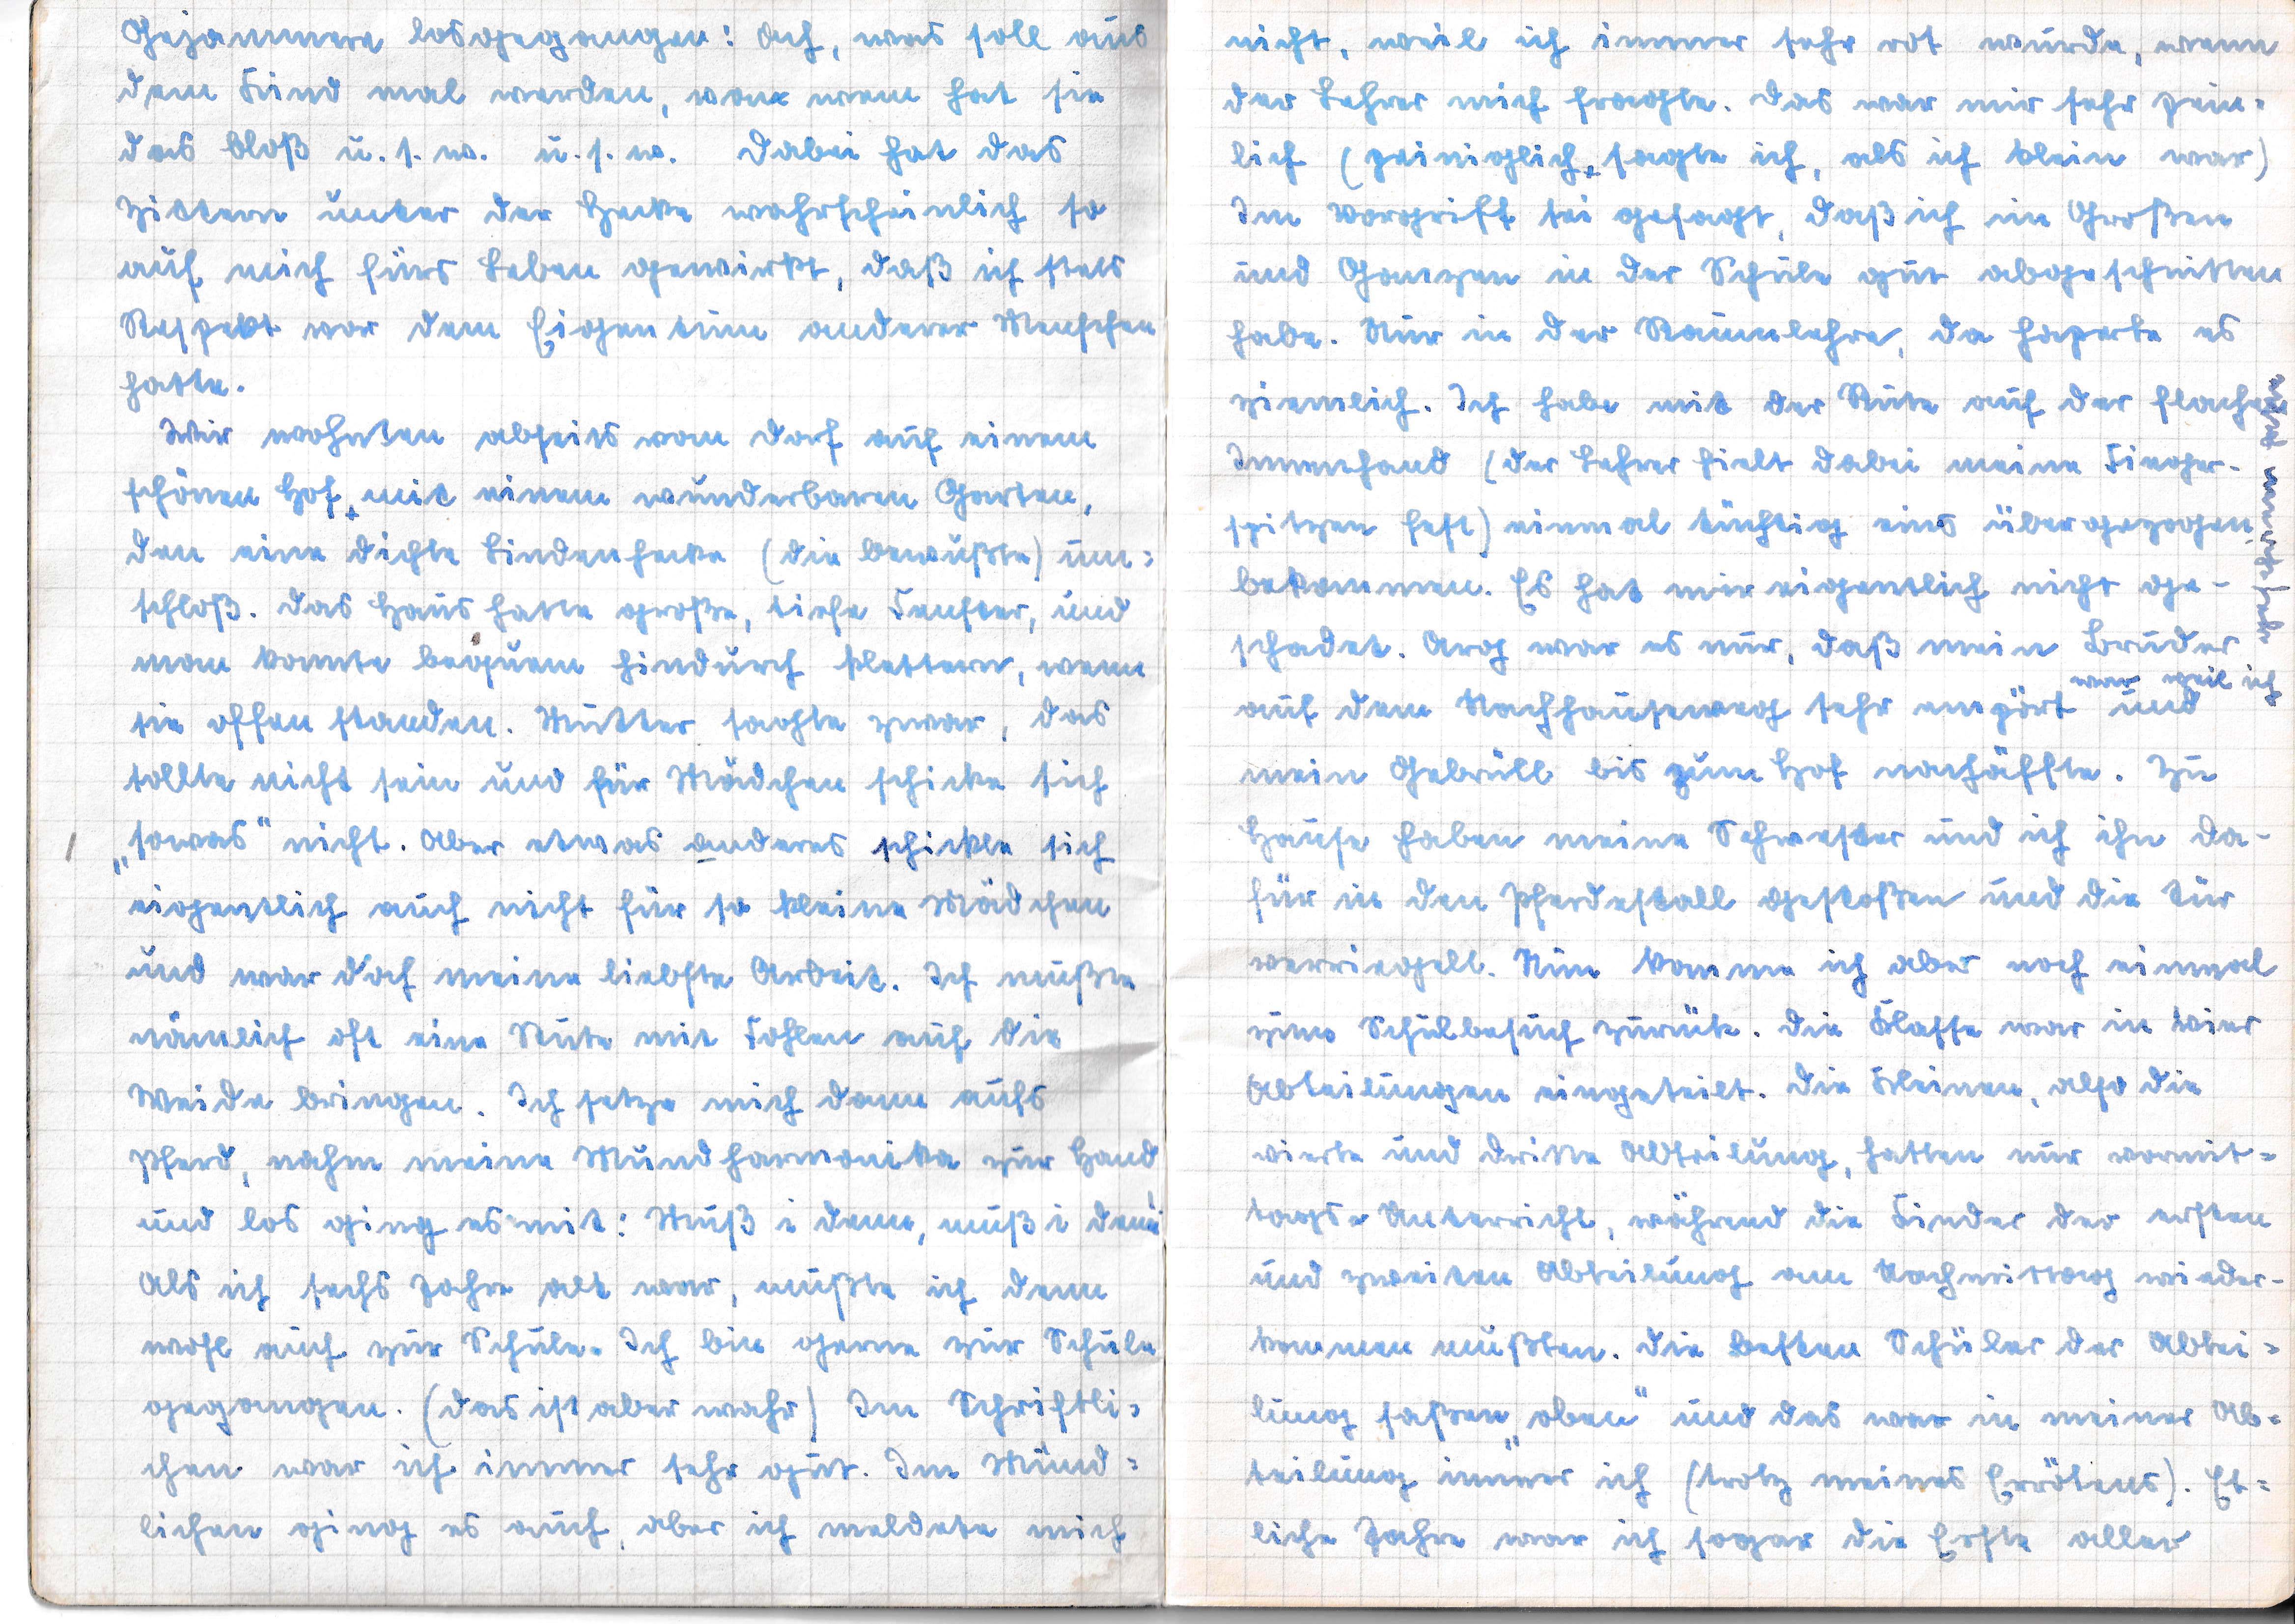 Gejammere losgegangen: Ach, was soll aus
dem Kind mal werden, von wem hat sie
das bloß u. s. w. u. s. w. Dabei hat das
Zittern unter der Hecke wahrscheinlich so
auf mich fürs Leben gewirkt, daß ich stets
Respekt vor dem Eigentum anderer Menschen
hatte.
Wir wohnten abseits vom Dorf auf einem
schönen Hof, mit einem wunderbaren Garten,
den eine dichte Lindenhecke (die bewußte) um=
schloß. Das Haus hatte große, tiefe Fenster, und
man konnte bequem hindurch klettern, wenn
sie offen standen. Mutter sagte zwar, das
sollte nicht sein und für Mädchen schicke sich
„sowas" nicht. Aber etwas anderes schickte sich
eigentlich auch nicht für so kleine Mädchen
und war doch meine liebste Arbeit. Ich mußte
nämlich oft eine Stute mit Fohlen auf die
Weide bringen. Ich setze mich dann aufs
Pferd, nahm meine Mundharmonika zur Hand
und los ging es mit: Muß i denn, muß i denn!
Als ich sechs Jahre alt war, mußte ich denn
wohl auch zur Schule. Ich bin gerne zur Schule
gegangen. (das ist aber wahr) Im Schriftli=
chen war ich immer sehr gut. Im Münd=
lichen ging es auch, aber ich meldete mich
nicht, weil ich immer sehr rot wurde, wenn
der Lehrer mich fragte. Das war mir sehr pein=
lich (peiniglich, sagte ich, als ich klein war)
Im Vorgriff sei gesagt, daß ich im Großen
und Ganzen in der Schule gut abgeschnitten
habe. Nur in der Raumlehre, da haperte es
ziemlich. Ich habe mit der Rute auf der flachen
Innenhand (der Lehrer hielt dabei meine Finger-
spitzen fest) einmal tüchtig eins übergezogen
bekommen. Es hat mir eigentlich nicht ge-
schadet. Arg war es nur, daß mein Bruder
war weil ich
auf dem Nachhauseweg sehr empört und
mein Gebrüll bis zum Hof nachäffte. Zu
Hause haben meine Schwester und ich ihn da-
für in den Pferdestall gestoßen und die Tür
verriegelt. Nun komme ich aber noch einmal
zum Schulbesuch zurück. Die Klasse war in vier
Abteilungen eingeteilt. Die Kleinen, also die
vierte und dritte Abteilung, hatten nur vormit=
tags Unterricht, während die Kinder der ersten
und zweiten Abteilung am Nachmittag wieder-
kommen mußten. Die besten Schüler der Abtei=
lung saßen „oben" und das war in meiner Ab=
teilung immer ich (trotz meines Errötens). Et=
liche Jahre war ich sogar die Erste aller